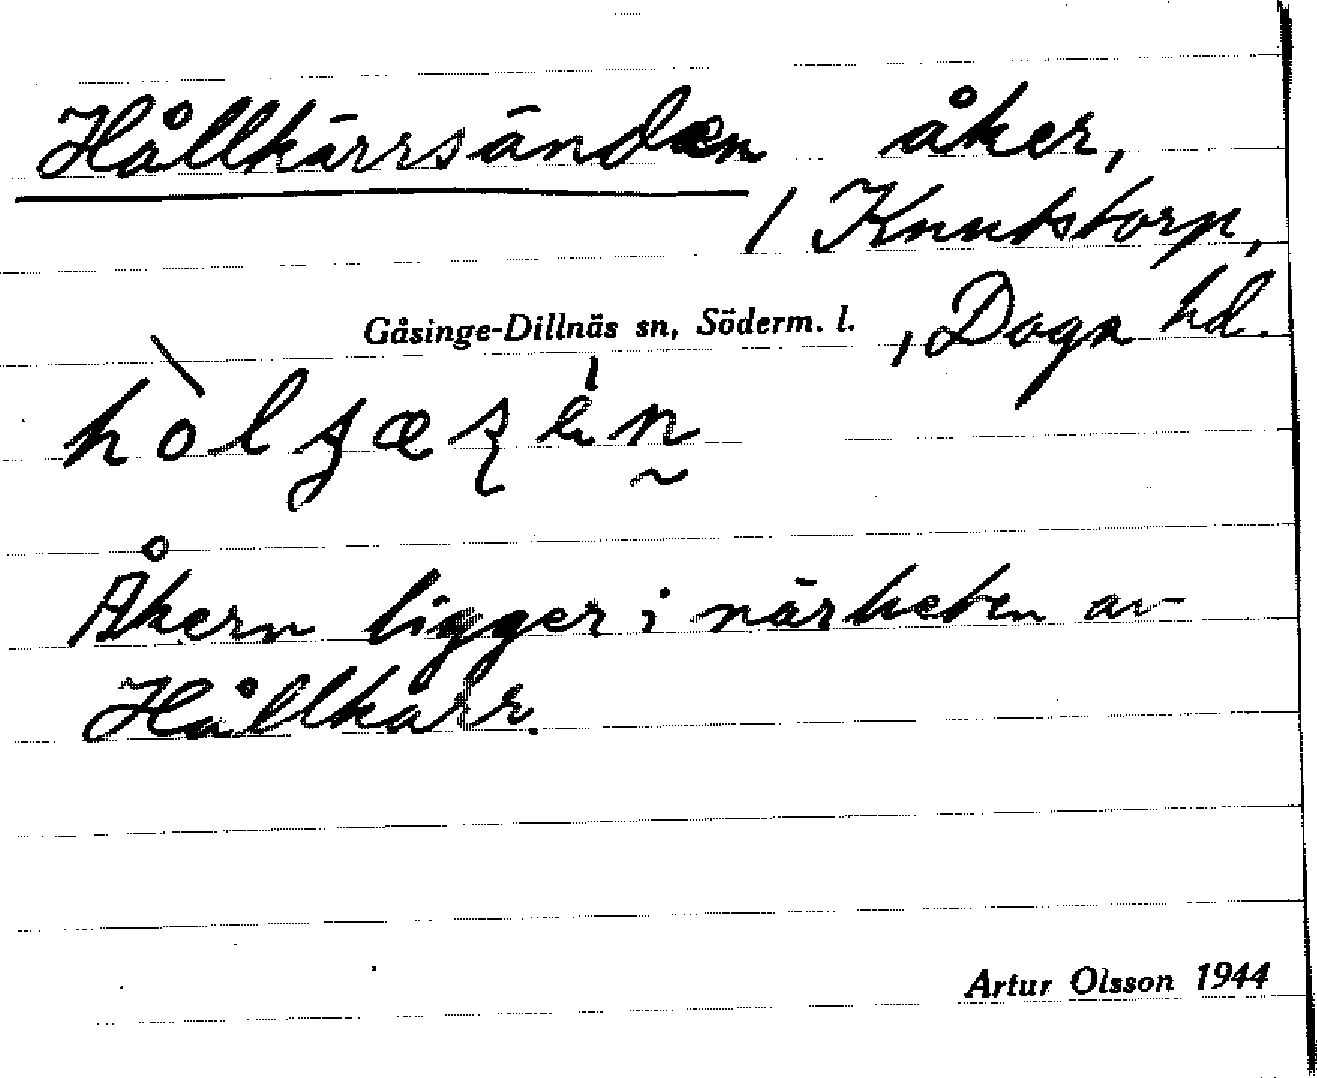 Hållkärrsänden åker,
/ Knutstorp,
Gåsinge-Dillnäs sn, Söderm. l. , Daga hd.
Åkern ligger i närheten av
Hållkärr.
Artur Olsson 1944